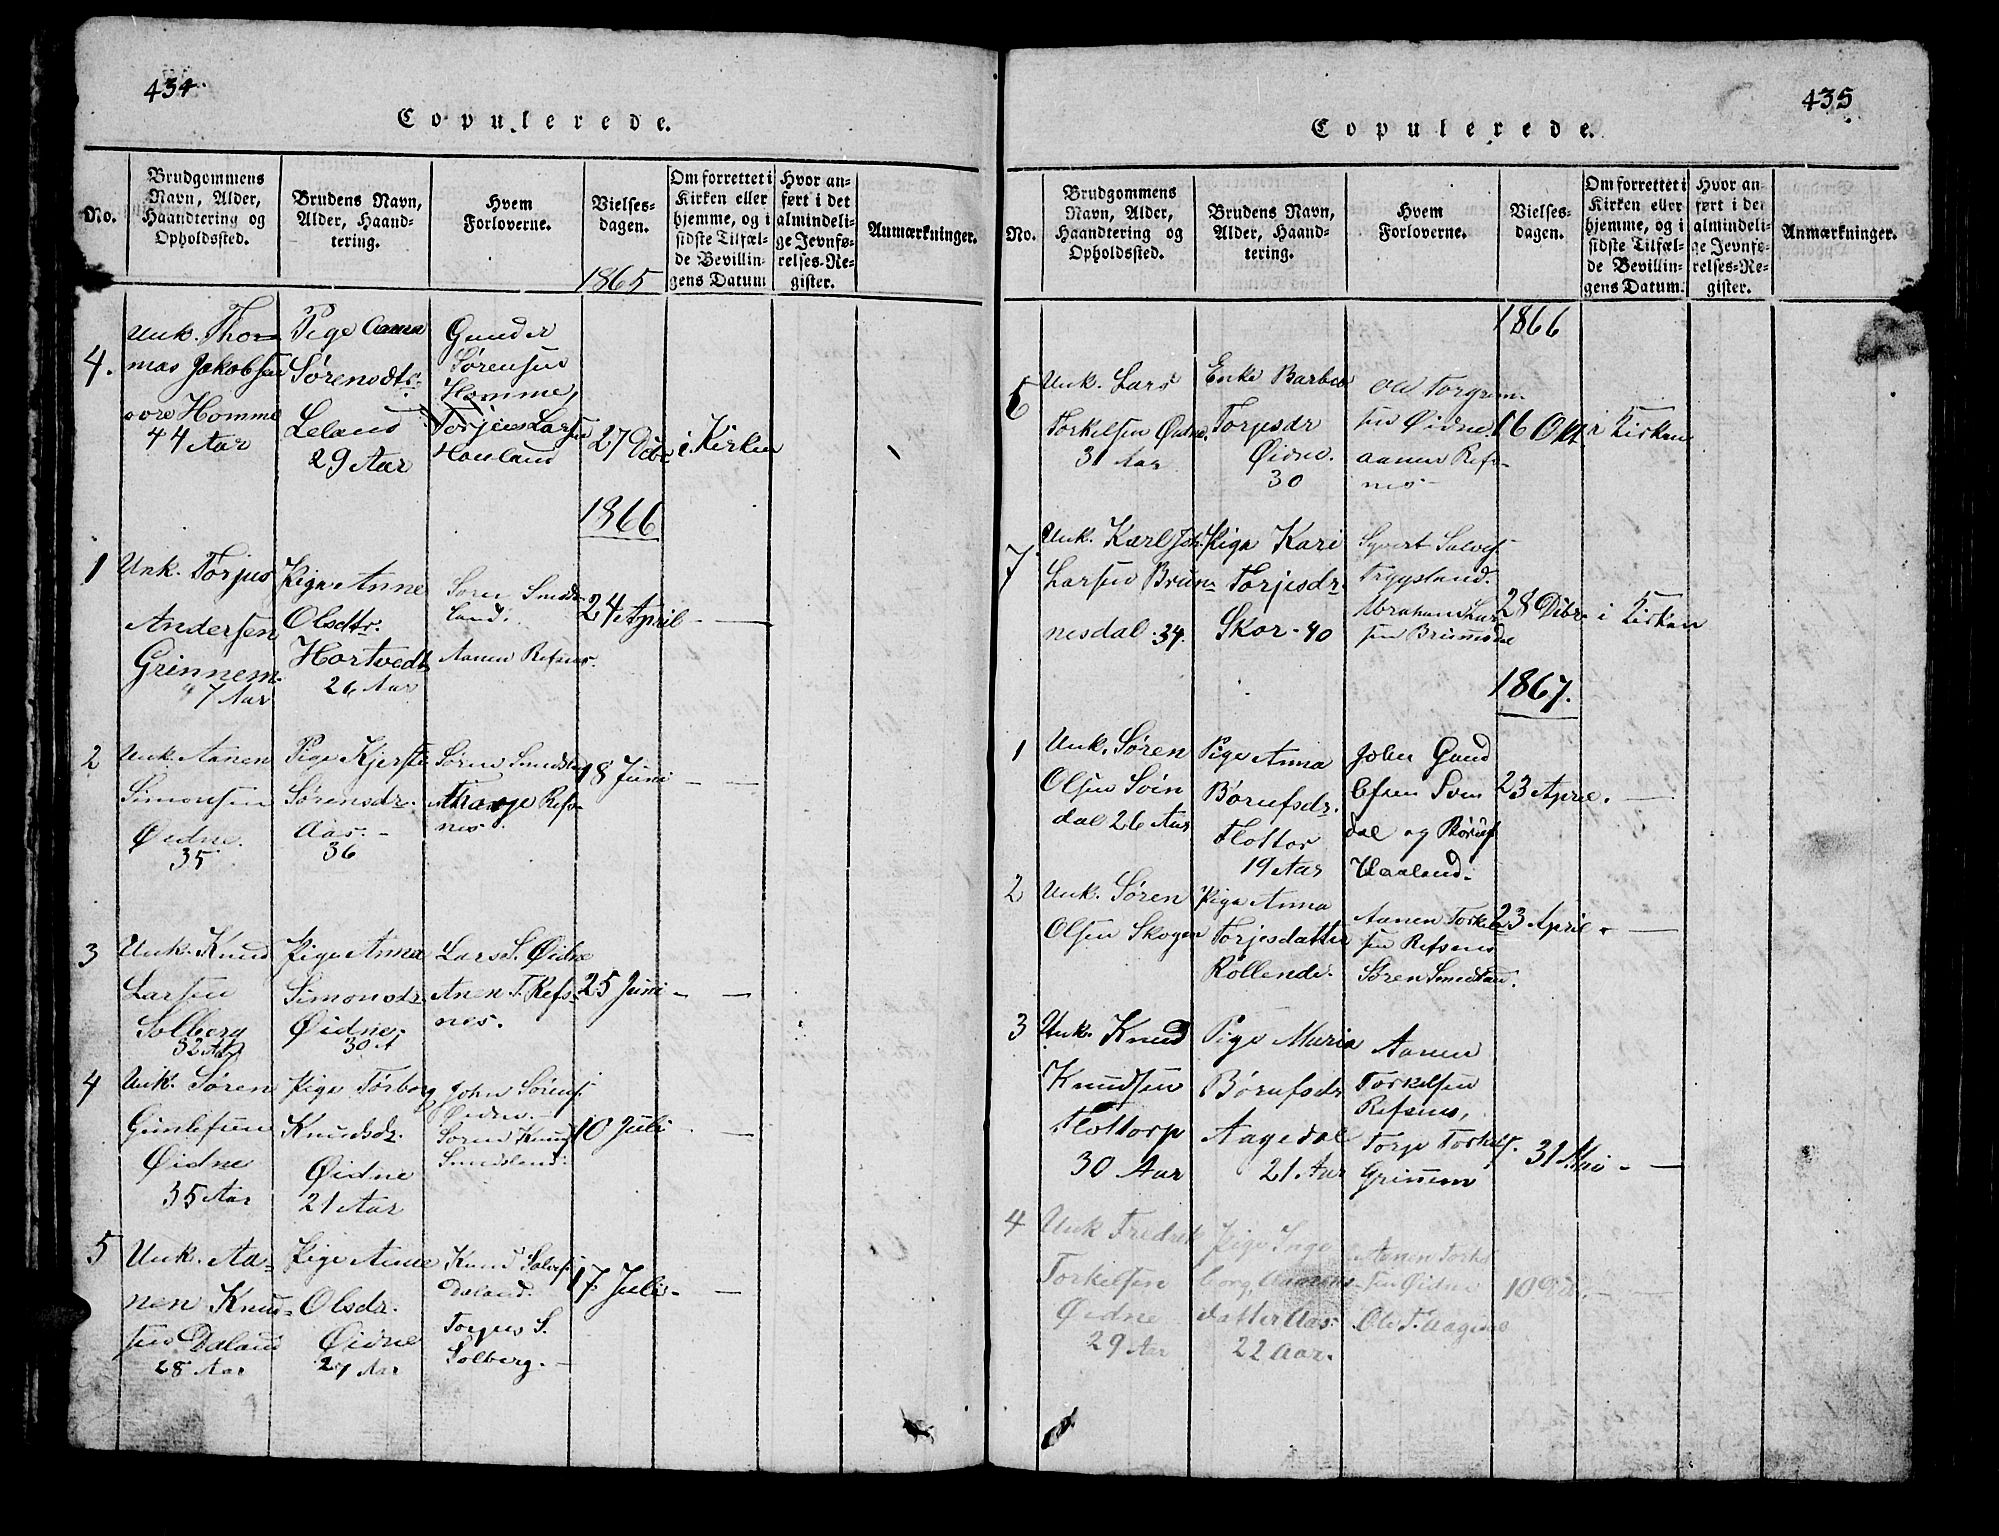 434.
Copulerede.
No.
Brudgommens
Navn, Alder,
Haandtering og
Opholdssted.
Brudens Navn,
Alder, Haand-
tering.
Hvem
Forloverne.
Vielses-
dagen.
Om forrettet i
Kirken eller
hjemme, og i
sidste Tilfæl-
de Bevillin-
gens Datum
Hvor an-
ført i det
almindeli-
ge Jevnfø-
relses-Re-
gister.
Anmærkninger.
1865
4.
Unk. Tho-
mas Jakobsen
øvre Homme
44 Aar
Pige Aanen
Sørensdtr.
Leland
29 Aar
Gunder
Sørensen
Homme,
Torjus Larsen
Houland
27 Decbr
i Kirken
1866
1
Unk. Torjus
Andersen
Grinnem.
47 Aar
Pige Anne
Olsdtr.
Hortvedt
26 Aar
Søren Smeds-
land.
Aanen Refsnes.
24 April - —
2
Unk. Aanen
Simonsen
Øidne.
35
Pige Kjersti
Sørensdr.
Aas. -
36
Søren Smedsland
Refs-
nes.
18 Juni - —
3
Unk. Knud
Larsen
Solberg
32 Aar
Pige Anna
Simonsdr.
Øidne.
30 A
Lars S. Øidne
Anen T. Refs-
nes.
25 Juni - —
4
Unk. Søren
Gunlefsen
Øidne
35 Aar
Pige Torborg
Knudsdr.
Øidne
21 Aar
John Sørens.
Øidne. -
Søren Knuds
Smedsland.
10 Juli - —
5
Unk. Aa-
nen Knud-
sen Daland
28 Aar
Pige Anne
Olsdr.
Øidne
27 Aar
Knud Salves.
Daland.
Torjus S.
Solberg. -
17 Juli - —
435
Copulerede.
No.
Brudgommens
Navn, Alder,
Haandtering og
Opholdssted.
Brudens Navn,
Alder, Haand-
tering.
Hvem
Forloverne.
Vielses-
dagen.
Om forrettet i
Kirken eller
hjemme, og i
sidste Tilfæl-
de Bevillin-
gens Datum.
Hvor an-
ført i det
almindeli-
ge Jevnfø-
relses-Re-
gister.
Anmærkninger.
1866
6
Unk. Lars
Torkelsen Øidne.
31 Aar
Enke Barbro
Torjesdr
Øidne.
30
Ole Torgrim-
sen Øidne.
Aanen Refs-
nes -
16 Okt.
i Kirken
7
Unk. Karl Joh.
Larsen Brun-
nesdal. 34.
Pige Kari
Torjesdr.
Skor - 40
Syvert Salves.
Trygsland.
Abraham Lar-
sen Brunnsdal
28 Decbr.
i Kirken
1867.
1
Unk. Søren
Olsen Svin
dal 26 Aar
Pige Anna
Børufsdr.
Flottor
19 Aar
John Gund
lefsen Svin
dal og Børuf
Haaland.
23 April. —
2
Unk. Søren
Olsen Skogen
Pige Anna
Torjesdatter
Røllende.
Aanen Torkel-
sen Refsnes
Søren Smedsland.
23 April. —
3
Unk. Knud
Knudsen
Flottorp
30 Aar
Pige Maria
Børufsdr
Aagedal
21 Aar
Aanen
Torkelsen
Refsnes,
Torje Torkels.
Grinnem
31 Mai - —
4
Unk Fredrik
Torkelsen
Øidne
29 Aar
Pige Inge
borg Aanens-
datter Aas.
22 Aar.
Aanen Torkel
sen Øidne
Ole T.
10